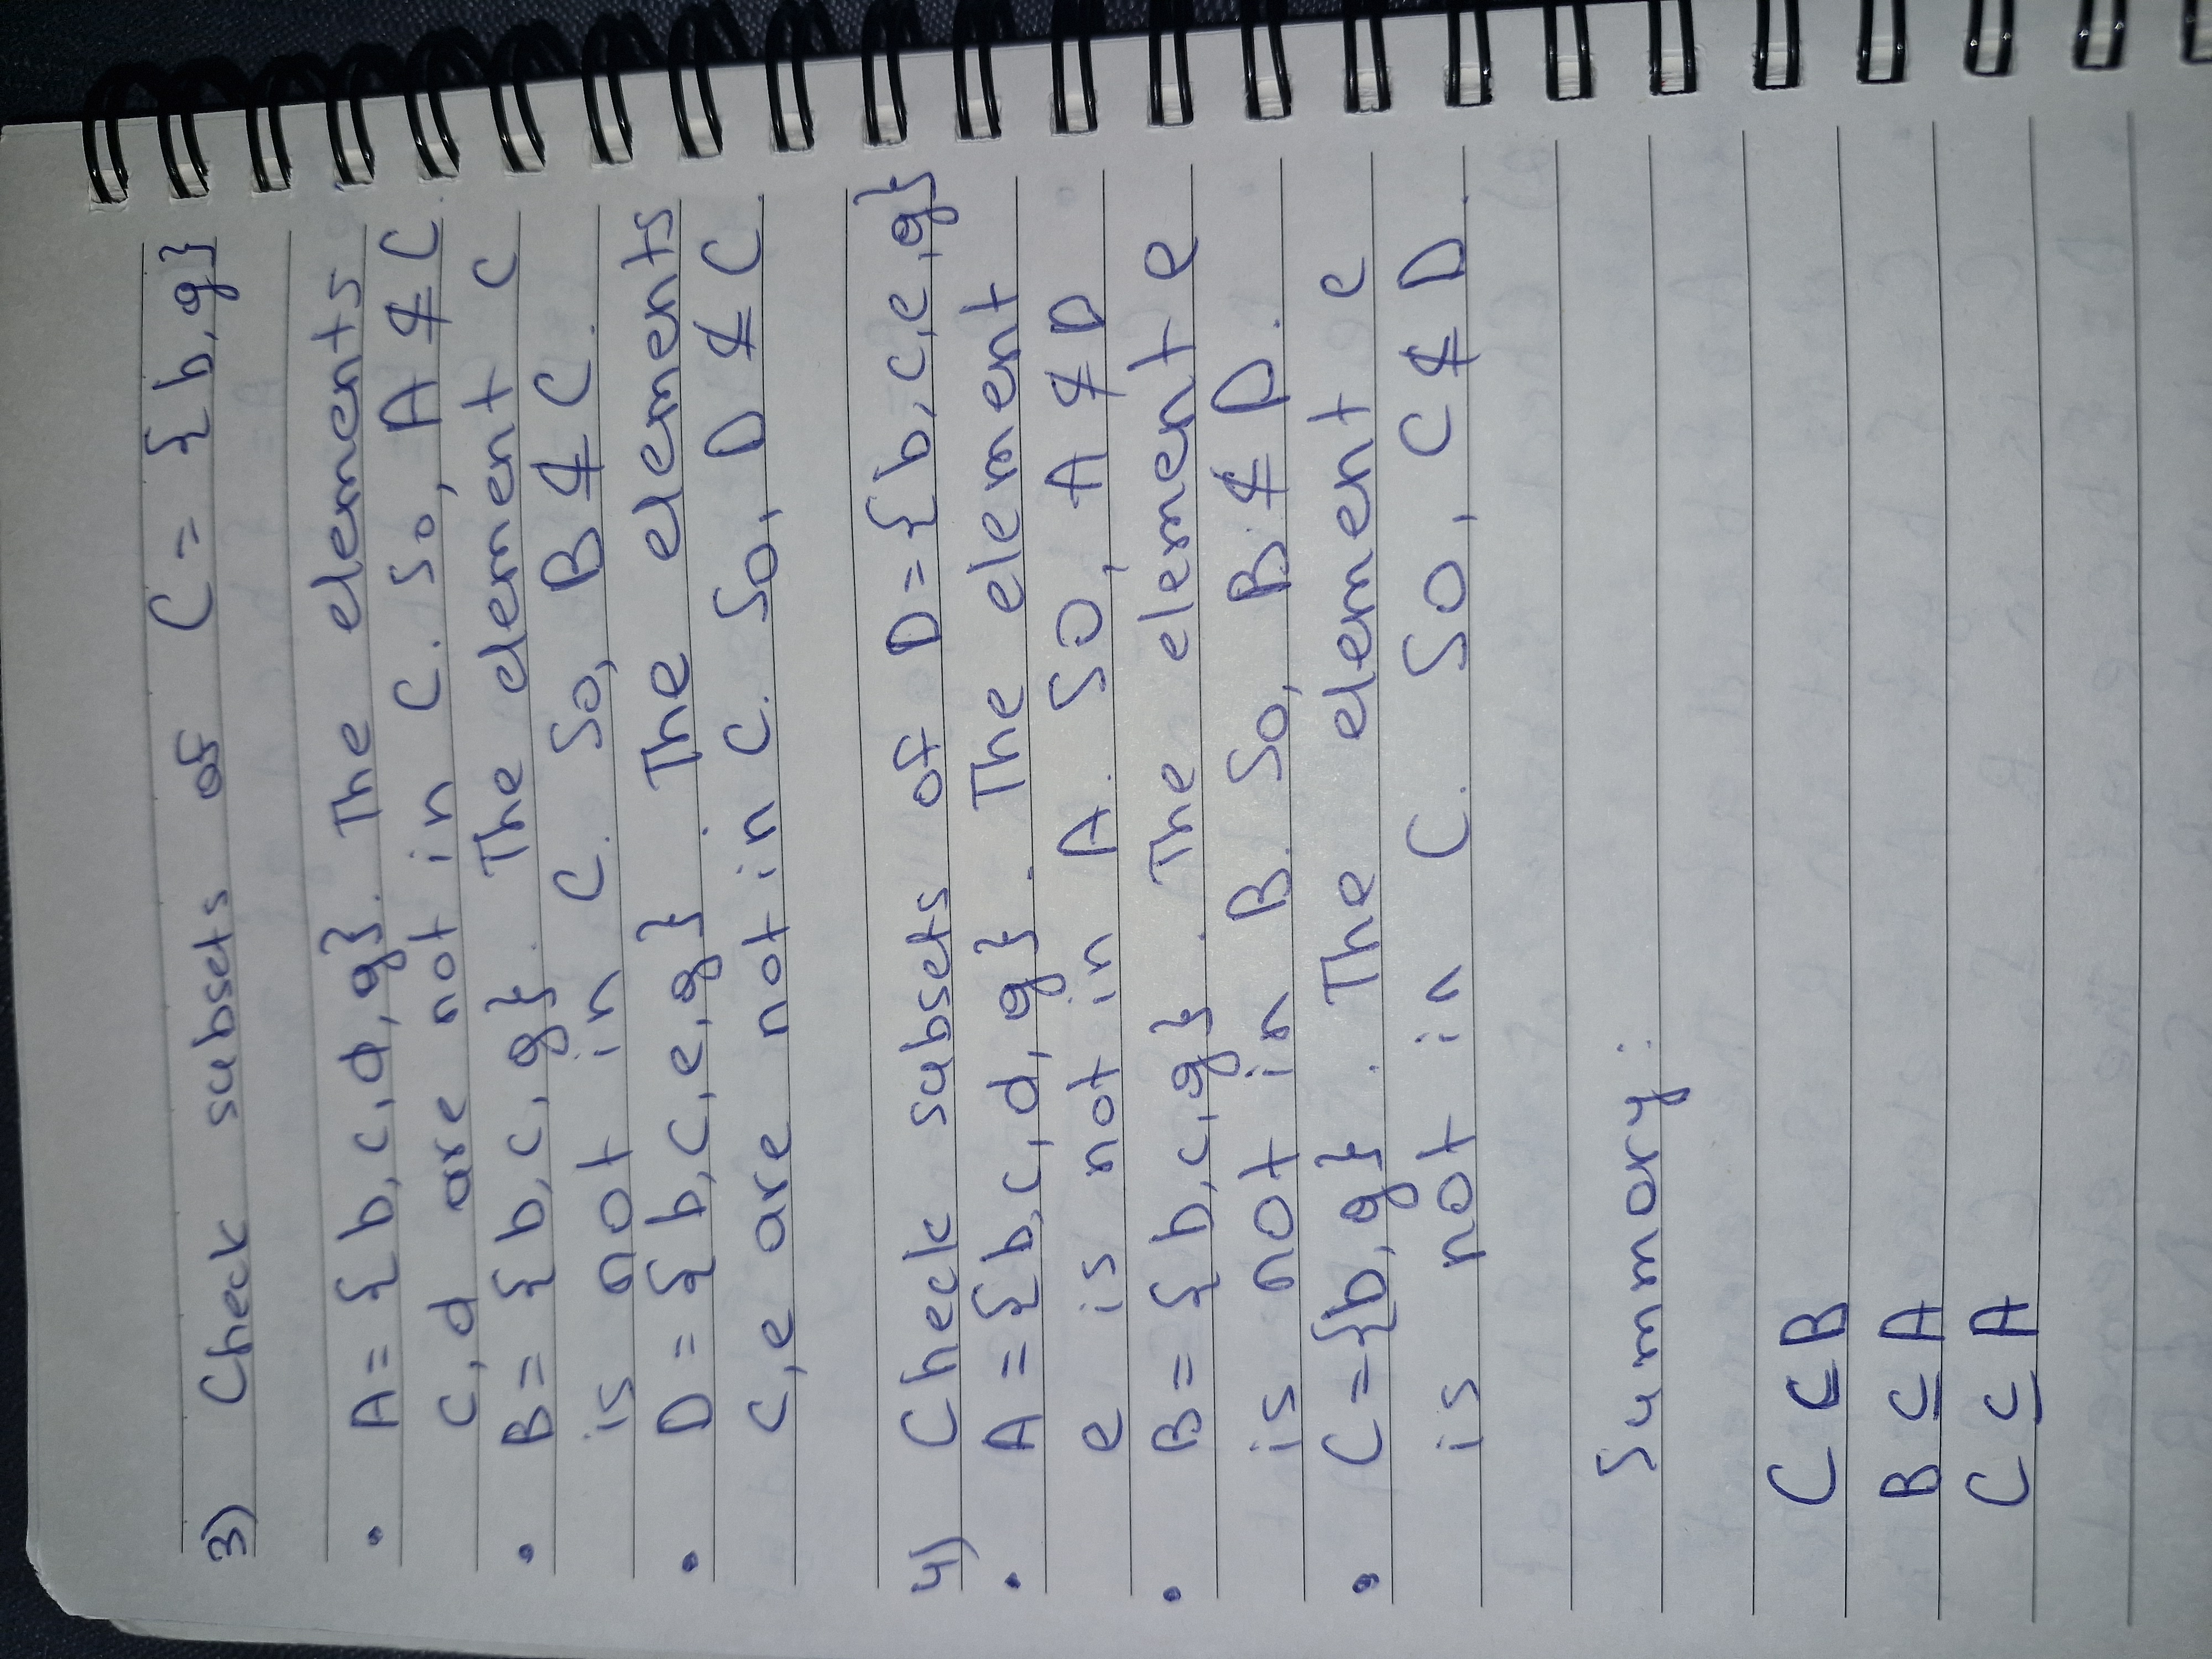 3) Check subsets of C = {b, g}
• A = {b, c, d, g}. The elements
c, d are not in C. So, A ⊈ C.
• B = {b, c, g}. The element c
is not in C. So, B ⊈ C.
• D = {b, c, e, g}. The elements
c, e are not in C. So, D ⊈ C.
4) Check subsets of D = {b, c, e, g}
• A = {b, c, d, g}. The element
e is not in A. SO, A ⊈ D
• B = {b, c, g}. The element e
is not in B. So, B ⊈ D.
• C = {b, g}. The element e
is not in C. SO, C ⊈ D.
Summary:
C ⊆ B
B ⊆ A
C ⊆ A